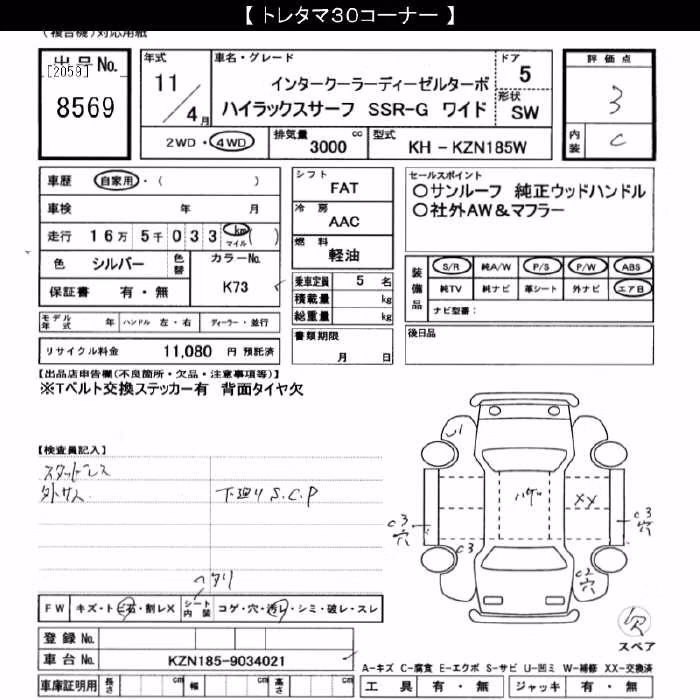 【 トレタマ30コーナー 】
(複合機)対応用紙
出品No.
[2059]
8569
年式
11/4月
車名・グレード
インタークーラーディーゼルターボ
ハイラックスサーフ SSR-G ワイド
ドア
5
形状
SW
評価点
3
内装
C
2WD・4WD
排気量
3000 cc
型式
KH - KZN185W
車歴 自家用・( )
車検 年 月
走行 16万 5千 033 km マイル ( )
色 シルバー 色替 カラーNo.
K73
保証書 有・無
モデル年式 年 ハンドル 左・右 ディーラー・並行
リサイクル料金 11,080 円 預託済
シフト
FAT
冷房
AAC
燃料
軽油
乗車定員 5 名
積載量 kg
総重量 kg
書類期限
月 日
セールスポイント
○サンルーフ 純正ウッドハンドル
○社外AW&マフラー
装備品
S/R 純A/W P/S P/W ABS
純TV 純ナビ 革シート 外ナビ エアB
ナビ型番:
後日品
【出品店申告欄(不良箇所・欠品・注意事項等)】
※Tベルト交換ステッカー有 背面タイヤ欠
【検査員記入】
スタットレス
外サス
下廻り S.C.P
ヘタリ
U1
ハゲ
XX
C3
穴
C3
穴
C3
C2
穴
欠
スペア
FW キズ・トビ石・割レX シート内装 コゲ・穴・汚レ・シミ・破レ・スレ
登録No.
車台No. KZN185-9034021
車庫証明用 長さ cm 幅 cm 高さ cm
A-キズ C-腐食 E-エクボ S-サビ U-凹ミ W-補修 XX-交換済
工具 有・無 ジャッキ 有・無